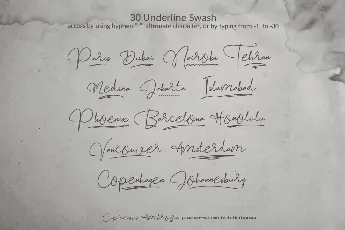 30 Underline Swash
access by using hyphen "-" alternate character, or by typing from -1 to -30
Paris Dubai Nairobi Tehran
Medina Jakarta Islamabad
Phoenix Barcelona Honolulu
Vancouver Amsterdam
Copenhagen Johannesburg